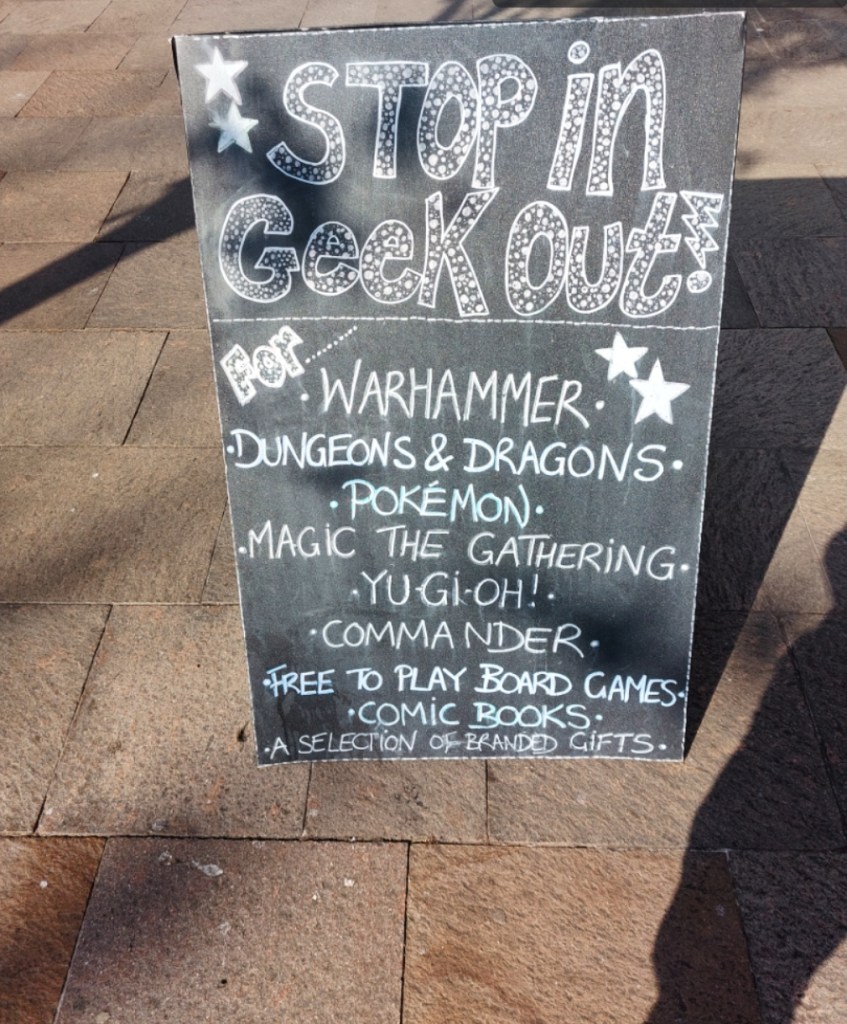 STOP iN
GeeK OuT!
FOR......
·WARHAMMER·
·DUNGEONS & DRAGONS·
·POKÉMON·
·MAGIC THE GATHERING·
·YU-GI-OH!·
·COMMANDER·
·FREE TO PLAY BOARD GAMES·
·COMIC BOOKS·
·A SELECTION OF BRANDED GIFTS·